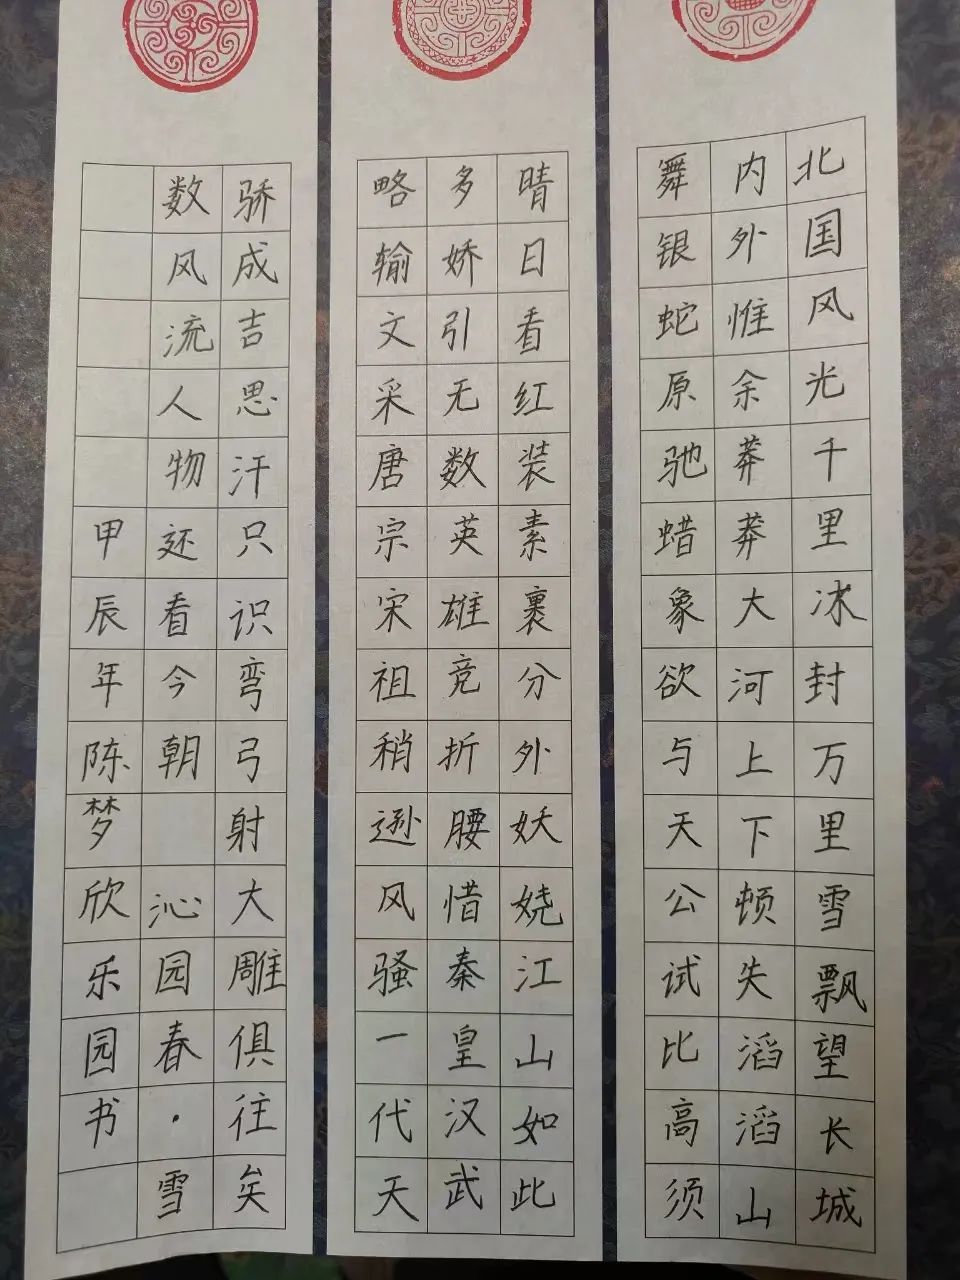 北国风光千里冰封万里雪飘望长城
内外惟余莽莽大河上下顿失滔滔山
舞银蛇原驰蜡象欲与天公试比高须
晴日看红装素裹分外妖娆江山如此
多娇引无数英雄竞折腰惜秦皇汉武
略输文采唐宗宋祖稍逊风骚一代天
骄成吉思汗只识弯弓射大雕俱往矣
数风流人物还看今朝 沁园春·雪
甲辰年陈梦欣乐园书